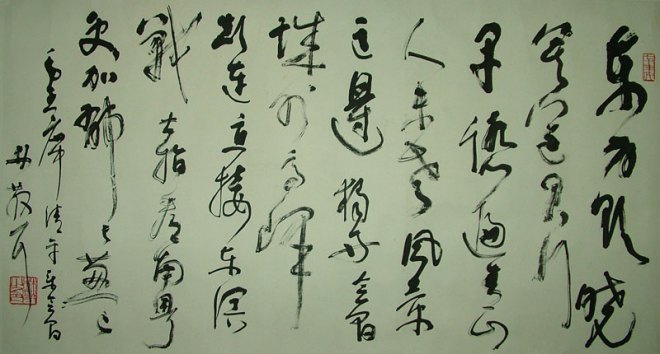 東方欲曉
莫道君行
早踏遍青山
人未老風景
這邊獨好會昌
城外高峰
顛連直接東溟
戰士指看南粵
更加郁々葱々
毛主席清平樂會昌